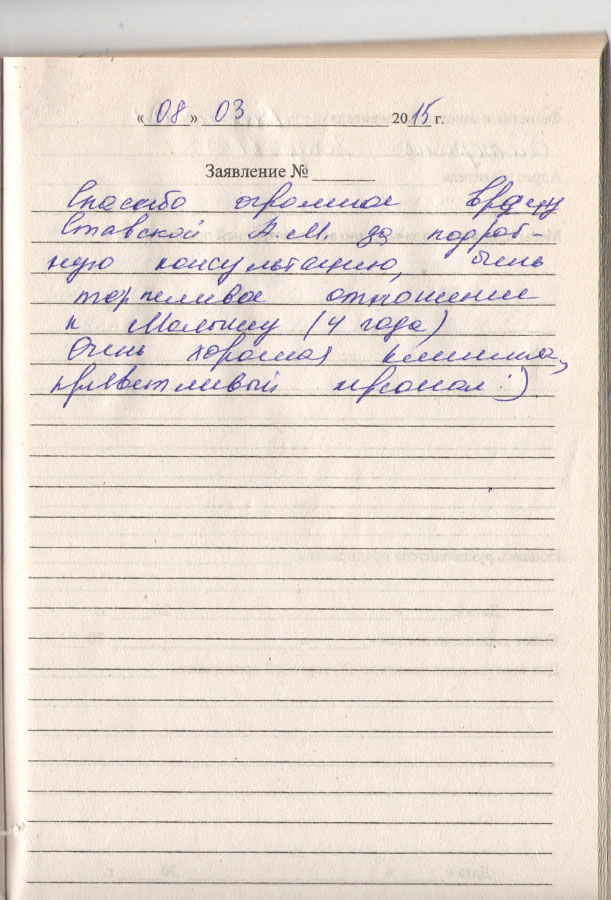 « 08 » 03 2015 г.
Заявление №
Спасибо огромное врачу
Ставской А.М. за подроб-
ную консультацию, очень
терпеливое отношение
к малышу (4 года)
Очень хорошая клиника,
приветливый персонал :)